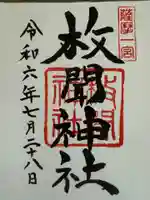 薩摩一宮
枚聞神社
令和六年七月二十八日